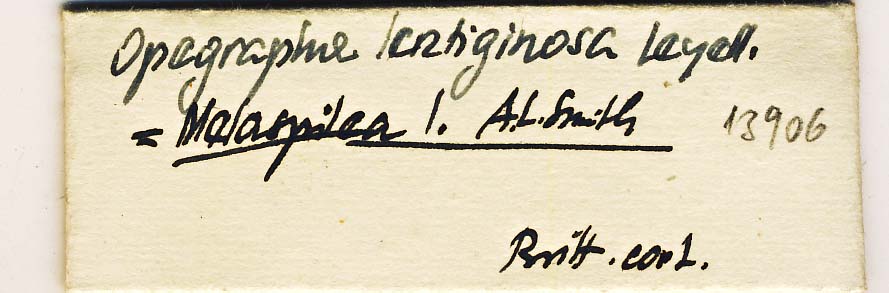 Opegrapha lentiginosa Leyell.
= Melaspilea l. A.L. Smith 13906
Britt. cont.